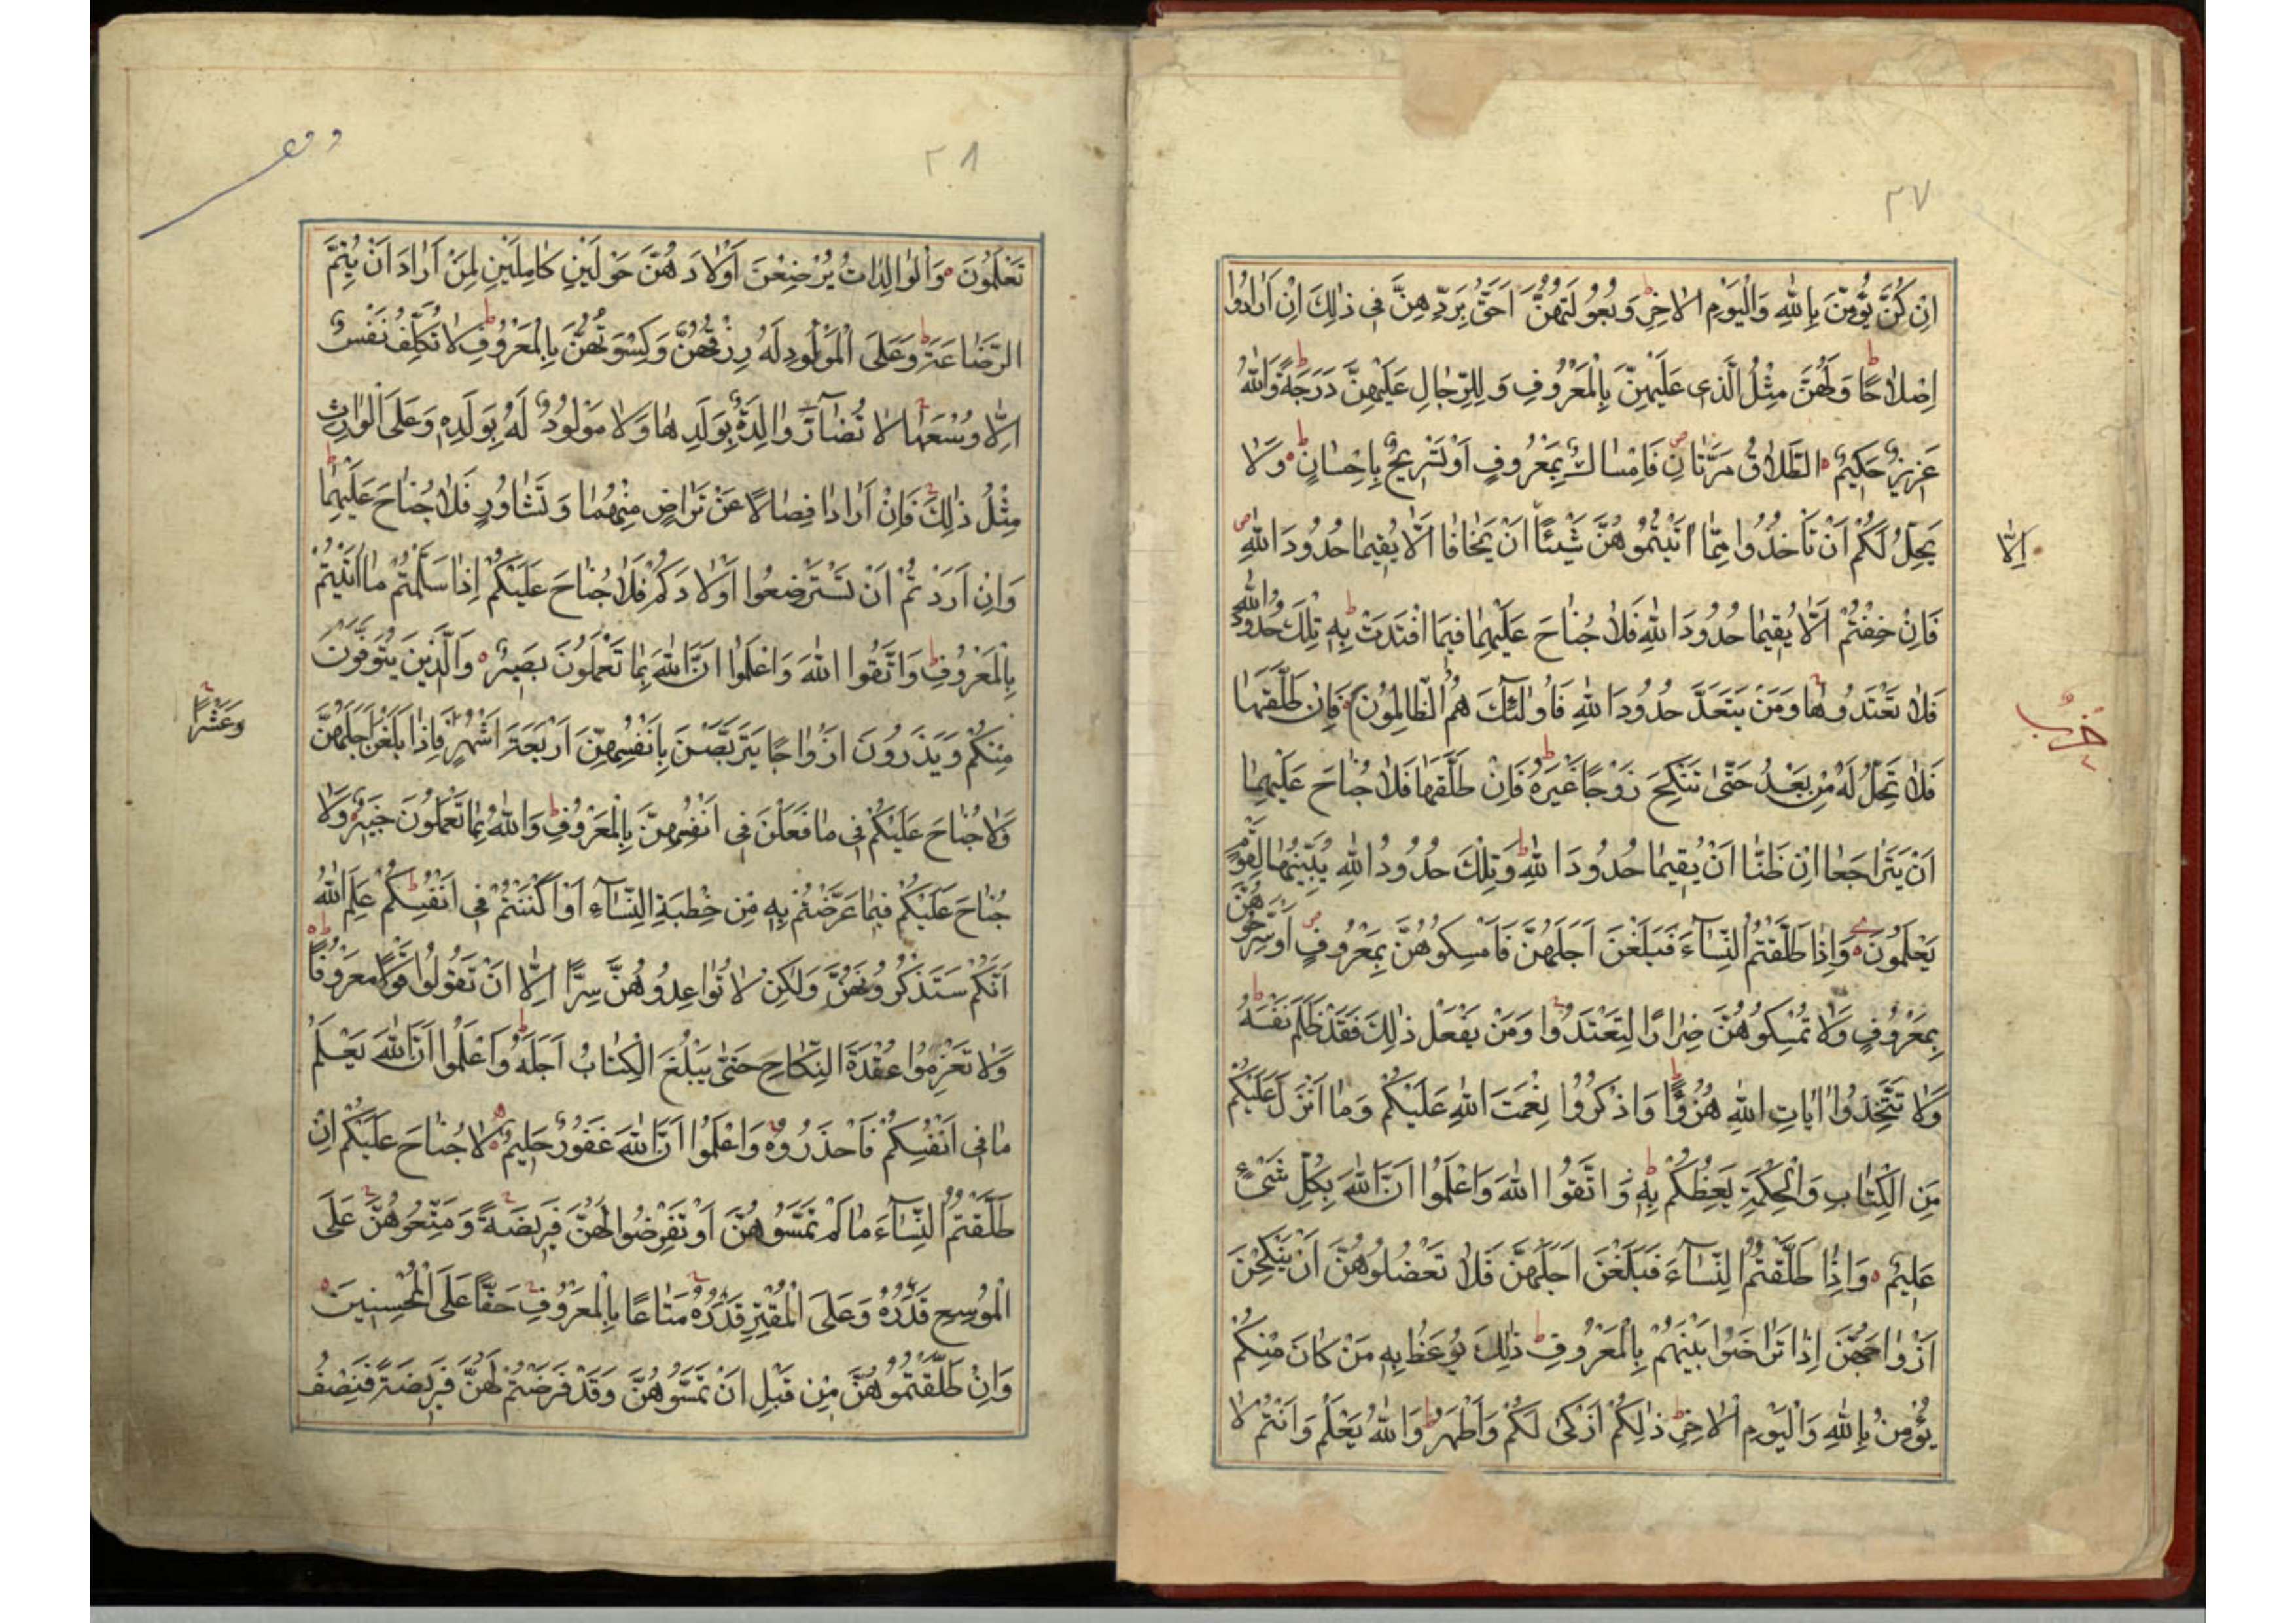 ٢٧
اِنْ كُنَّ يُؤْمِنَّ بِاللّٰهِ وَالْيَوْمِ الْاٰخِرِ ط وَبُعُولَتُهُنَّ اَحَقُّ بِرَدِّهِنَّ فِى ذٰلِكَ اِنْ اَرَادُوا
اِصْلَاحًا ط وَلَهُنَّ مِثْلُ الَّذِى عَلَيْهِنَّ بِالْمَعْرُوفِ وَلِلرِّجَالِ عَلَيْهِنَّ دَرَجَةٌ ط وَاللّٰهُ
عَزِيزٌ حَكِيمٌ ه الطَّلَاقُ مَرَّتَانِ ص فَاِمْسَاكٌ بِمَعْرُوفٍ اَوْ تَسْرِيحٌ بِاِحْسَانٍ ط ه وَلَا
يَحِلُّ لَكُمْ اَنْ تَاْخُذُوا مِمَّا اٰتَيْتُمُوهُنَّ شَيْئًا اَنْ يَخَافَا اَلَّا يُقِيمَا حُدُودَ اللّٰهِ ص
اِلَّا
فَاِنْ خِفْتُمْ اَلَّا يُقِيمَا حُدُودَ اللّٰهِ فَلَا جُنَاحَ عَلَيْهِمَا فِيمَا افْتَدَتْ بِهِ ط تِلْكَ حُدُودُ اللّٰهِ
فَلَا تَعْتَدُوهَا وَمَنْ يَتَعَدَّ حُدُودَ اللّٰهِ فَاُولٰئِكَ هُمُ الظَّالِمُونَ ه فَاِنْ طَلَّقَهَا
حِزْبٌ
فَلَا تَحِلُّ لَهُ مِنْ بَعْدُ حَتّٰى تَنْكِحَ زَوْجًا غَيْرَهُ ط فَاِنْ طَلَّقَهَا فَلَا جُنَاحَ عَلَيْهِمَا
اَنْ يَتَرَاجَعَا اِنْ ظَنَّا اَنْ يُقِيمَا حُدُودَ اللّٰهِ ط وَتِلْكَ حُدُودُ اللّٰهِ يُبَيِّنُهَا لِقَوْمٍ
يَعْلَمُونَ ه وَاِذَا طَلَّقْتُمُ النِّسَاءَ فَبَلَغْنَ اَجَلَهُنَّ فَاَمْسِكُوهُنَّ بِمَعْرُوفٍ اَوْ سَرِّحُوهُنَّ
بِمَعْرُوفٍ وَلَا تُمْسِكُوهُنَّ ضِرَارًا لِتَعْتَدُوا وَمَنْ يَفْعَلْ ذٰلِكَ فَقَدْ ظَلَمَ نَفْسَهُ ط
وَلَا تَتَّخِذُوا اٰيَاتِ اللّٰهِ هُزُوًا وَاذْكُرُوا نِعْمَتَ اللّٰهِ عَلَيْكُمْ وَمَا اَنْزَلَ عَلَيْكُمْ
مِنَ الْكِتَابِ وَالْحِكْمَةِ يَعِظُكُمْ بِهِ ط وَاتَّقُوا اللّٰهَ وَاعْلَمُوا اَنَّ اللّٰهَ بِكُلِّ شَىْءٍ
عَلِيمٌ ه وَاِذَا طَلَّقْتُمُ النِّسَاءَ فَبَلَغْنَ اَجَلَهُنَّ فَلَا تَعْضُلُوهُنَّ اَنْ يَنْكِحْنَ
اَزْوَاجَهُنَّ اِذَا تَرَاضَوْا بَيْنَهُمْ بِالْمَعْرُوفِ ط ذٰلِكَ يُوعَظُ بِهِ مَنْ كَانَ مِنْكُمْ
يُؤْمِنُ بِاللّٰهِ وَالْيَوْمِ الْاٰخِرِ ط ذٰلِكُمْ اَزْكٰى لَكُمْ وَاَطْهَرُ ط وَاللّٰهُ يَعْلَمُ وَاَنْتُمْ لَا
٢٨
تَعْلَمُونَ ه وَالْوَالِدَاتُ يُرْضِعْنَ اَوْلَادَهُنَّ حَوْلَيْنِ كَامِلَيْنِ لِمَنْ اَرَادَ اَنْ يُتِمَّ
الرَّضَاعَةَ ط وَعَلَى الْمَوْلُودِ لَهُ رِزْقُهُنَّ وَكِسْوَتُهُنَّ بِالْمَعْرُوفِ ط لَا تُكَلَّفُ نَفْسٌ
اِلَّا وُسْعَهَا لَا تُضَارَّ وَالِدَةٌ بِوَلَدِهَا وَلَا مَوْلُودٌ لَهُ بِوَلَدِهِ وَعَلَى الْوَارِثِ
مِثْلُ ذٰلِكَ فَاِنْ اَرَادَا فِصَالًا عَنْ تَرَاضٍ مِنْهُمَا وَتَشَاوُرٍ فَلَا جُنَاحَ عَلَيْهِمَا ط
وَاِنْ اَرَدْتُمْ اَنْ تَسْتَرْضِعُوا اَوْلَادَكُمْ فَلَا جُنَاحَ عَلَيْكُمْ اِذَا سَلَّمْتُمْ مَا اٰتَيْتُمْ
بِالْمَعْرُوفِ ط وَاتَّقُوا اللّٰهَ وَاعْلَمُوا اَنَّ اللّٰهَ بِمَا تَعْمَلُونَ بَصِيرٌ ه وَالَّذِينَ يُتَوَفَّوْنَ
مِنْكُمْ وَيَذَرُونَ اَزْوَاجًا يَتَرَبَّصْنَ بِاَنْفُسِهِنَّ اَرْبَعَةَ اَشْهُرٍ فَاِذَا بَلَغْنَ اَجَلَهُنَّ
وَعَشْرًا
فَلَا جُنَاحَ عَلَيْكُمْ فِى مَا فَعَلْنَ فِى اَنْفُسِهِنَّ بِالْمَعْرُوفِ ط وَاللّٰهُ بِمَا تَعْمَلُونَ خَبِيرٌ ه وَلَا
جُنَاحَ عَلَيْكُمْ فِيمَا عَرَّضْتُمْ بِهِ مِنْ خِطْبَةِ النِّسَاءِ اَوْ اَكْنَنْتُمْ فِى اَنْفُسِكُمْ ط عَلِمَ اللّٰهُ
اَنَّكُمْ سَتَذْكُرُونَهُنَّ وَلٰكِنْ لَا تُوَاعِدُوهُنَّ سِرًّا اِلَّا اَنْ تَقُولُوا قَوْلًا مَعْرُوفًا ط ه
وَلَا تَعْزِمُوا عُقْدَةَ النِّكَاحِ حَتّٰى يَبْلُغَ الْكِتَابُ اَجَلَهُ ط وَاعْلَمُوا اَنَّ اللّٰهَ يَعْلَمُ
مَا فِى اَنْفُسِكُمْ فَاحْذَرُوهُ وَاعْلَمُوا اَنَّ اللّٰهَ غَفُورٌ حَلِيمٌ ه لَا جُنَاحَ عَلَيْكُمْ اِنْ
طَلَّقْتُمُ النِّسَاءَ مَا لَمْ تَمَسُّوهُنَّ اَوْ تَفْرِضُوا لَهُنَّ فَرِيضَةً وَمَتِّعُوهُنَّ عَلَى
الْمُوسِعِ قَدَرُهُ وَعَلَى الْمُقْتِرِ قَدَرُهُ مَتَاعًا بِالْمَعْرُوفِ حَقًّا عَلَى الْمُحْسِنِينَ ه
وَاِنْ طَلَّقْتُمُوهُنَّ مِنْ قَبْلِ اَنْ تَمَسُّوهُنَّ وَقَدْ فَرَضْتُمْ لَهُنَّ فَرِيضَةً فَنِصْفُ